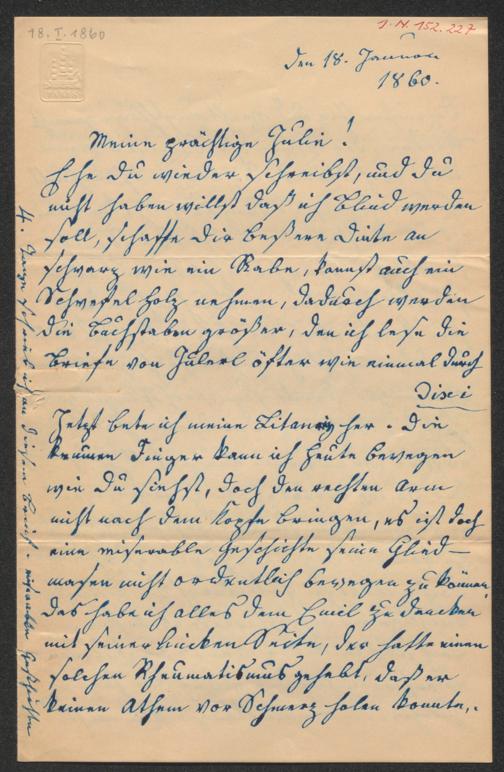 18. I. 1860
I.N. 152.227
den 18. Januar
1860.
Meine prächtige Julie!
Ehe du wieder schreibst, und du
nicht haben willst daß ich Blind werden
soll, schaffe dir beßere Dinte an
schwarz wie ein Rabe, kannst auch ein
Schwefel Holz nehmen, dadurch werden
die Buchstaben größer, den ich lese die
Briefe von Julerl öfter wie einmal durch
Dixi
Jetzt bete ich meine Litaney her. Die
krumen Finger kann ich heute bewegen
wie du siehst, doch den rechten Arm
nicht nach dem Kopfe bringen, es ist doch
eine miserable Geschichte seine Glied-
masen nicht ordentlich bewegen zu können
das habe ich alles dem Emil zu dancken
mit seiner lincken Seite, der hatte einen
solchen Rheumatismus gehabt, daß er
keinen Athem vor Schmerz holen konnte,.
4. Tage schreibe ich an diesen Brief, miserable Geschichte